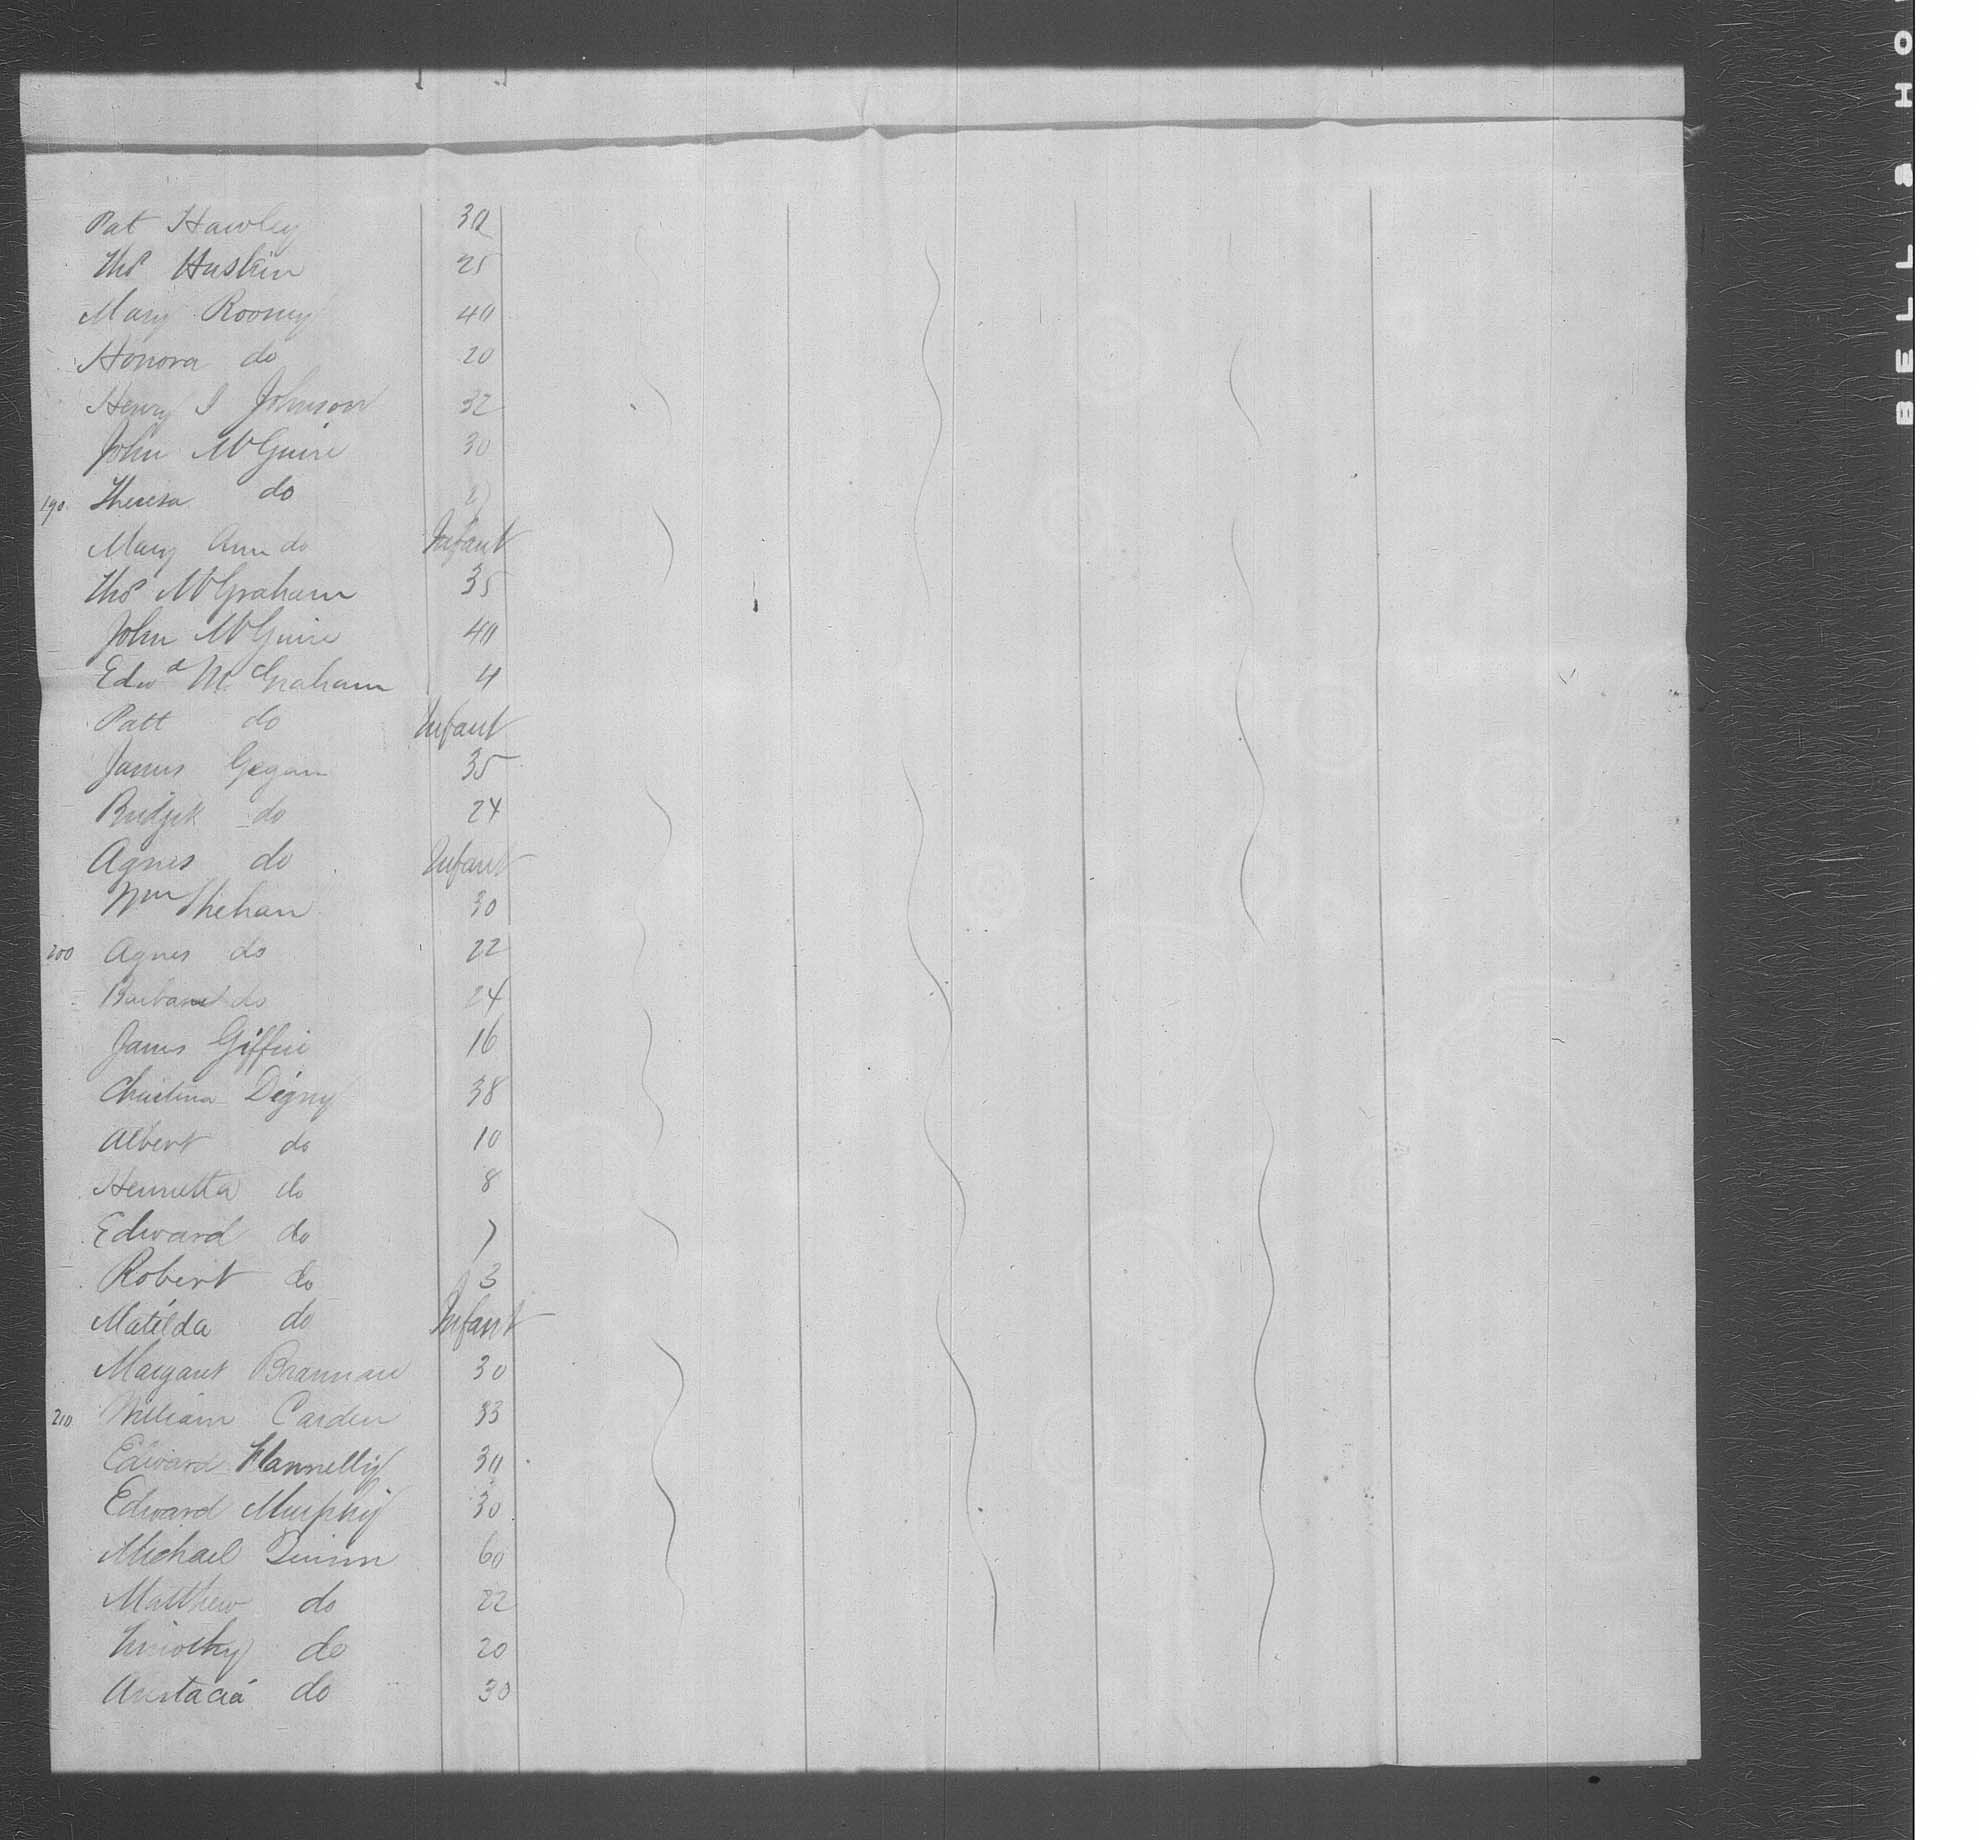 Pat Hawley 30
Thos Huskin 25
Mary Rooney 40
Honora do 20
Henry I Johnson 32
John McGuire 30
190 Theresa do
Mary Ann do Infant
Thos McGraham 35
John McGuire 40
Edwd McGraham 4
Patt do Infant
James Gegan 35
Bridget do 24
Agnes do Infant
Wm Shehan 30
200 Agnes do 22
Barbara do 24
James Giffin 16
Christina Digny 38
Albert do 10
Henrietta do 8
Edward do 7
Robert do 3
Matilda do Infant
Margaret Brannan 30
210 William Carden 33
Edward Flannelly 30
Edward Murphy 30
Michael Quinn 60
Matthew do 22
Timothy do 20
Anstacia do 30
BELL & HO